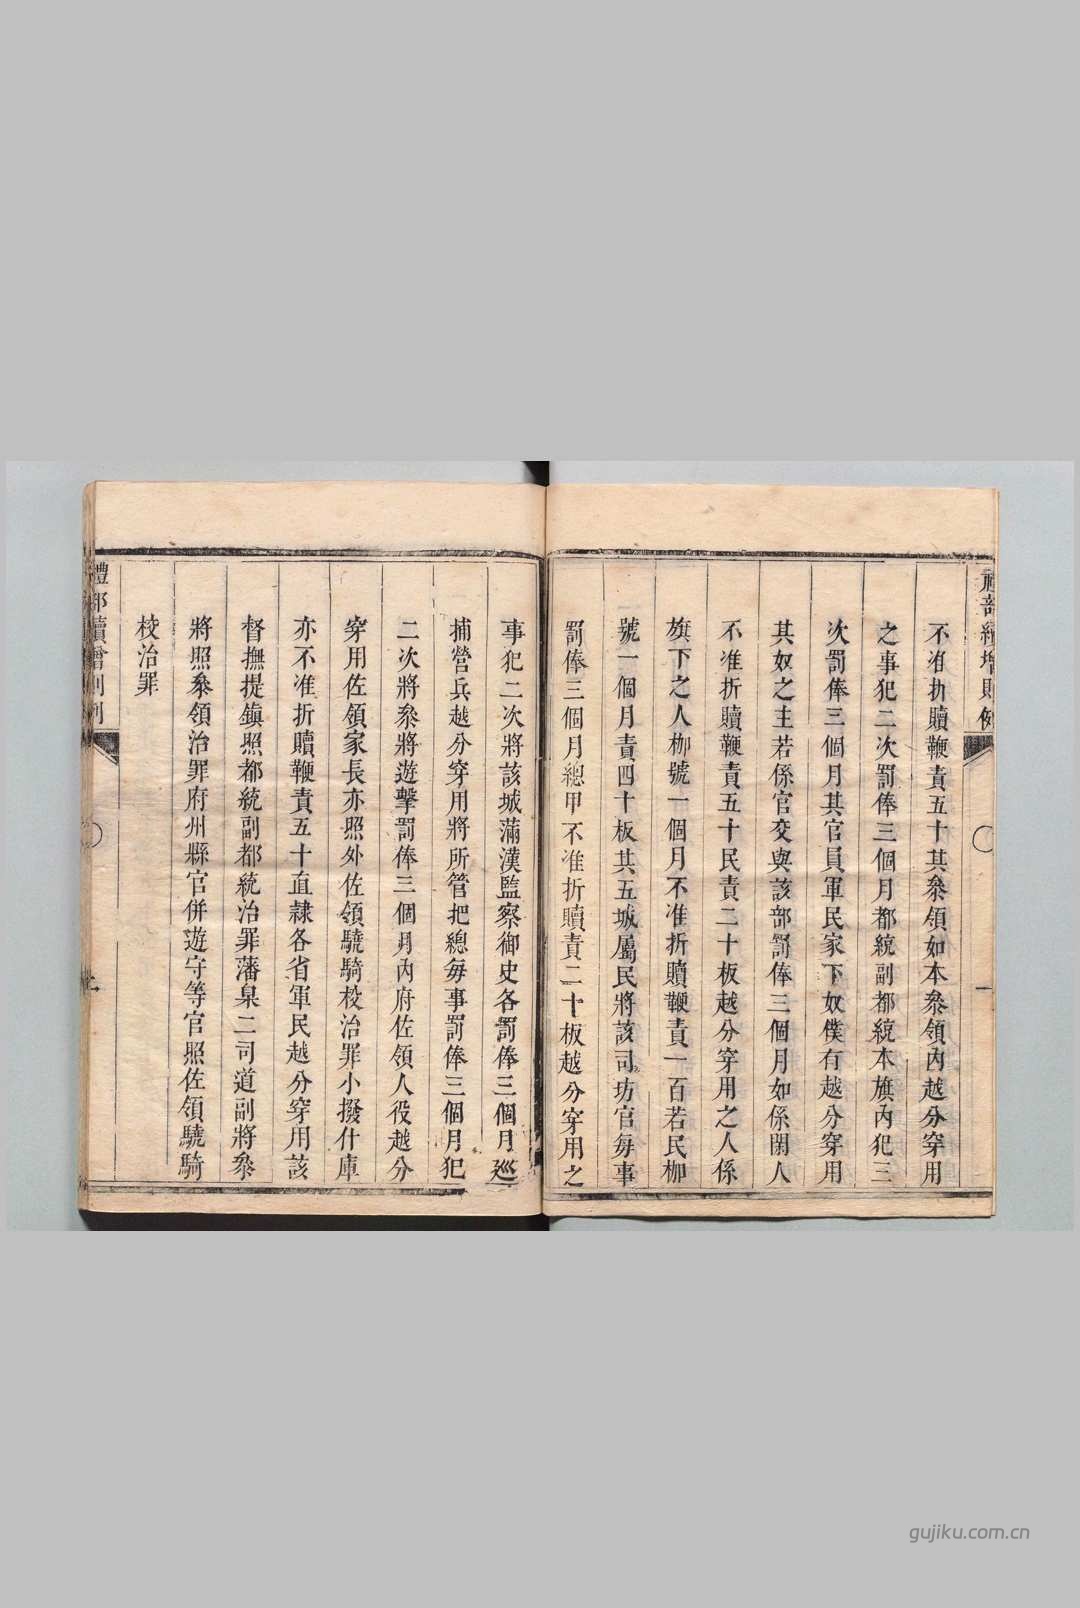 禮部續增則例
一
不准折贖鞭責五十其叅領如本叅領內越分穿用
之事犯二次罰俸三個月都統副都統本旗內犯三
次罰俸三個月其官員軍民家下奴僕有越分穿用
其奴之主若係官交與該部罰俸三個月如係閑人
不准折贖鞭責五十民責二十板越分穿用之人係
旗下之人枷號一個月不准折贖鞭責一百若民枷
號一個月責四十板其五城屬民將該司坊官每事
罰俸三個月總甲不准折贖責二十板越分穿用之
事犯二次將該城滿漢監察御史各罰俸三個月廵
捕營兵越分穿用將所管把總每事罰俸三個月犯
二次將叅將遊擊罰俸三個月內府佐領人役越分
穿用佐領家長亦照外佐領驍騎校治罪小撥什庫
亦不准折贖鞭責五十直隸各省軍民越分穿用該
督撫提鎮照都統副都統治罪藩臬二司道副將叅
將照叅領治罪府州縣官併遊守等官照佐領驍騎
校治罪
禮部續增則例
gujiku.com.cn